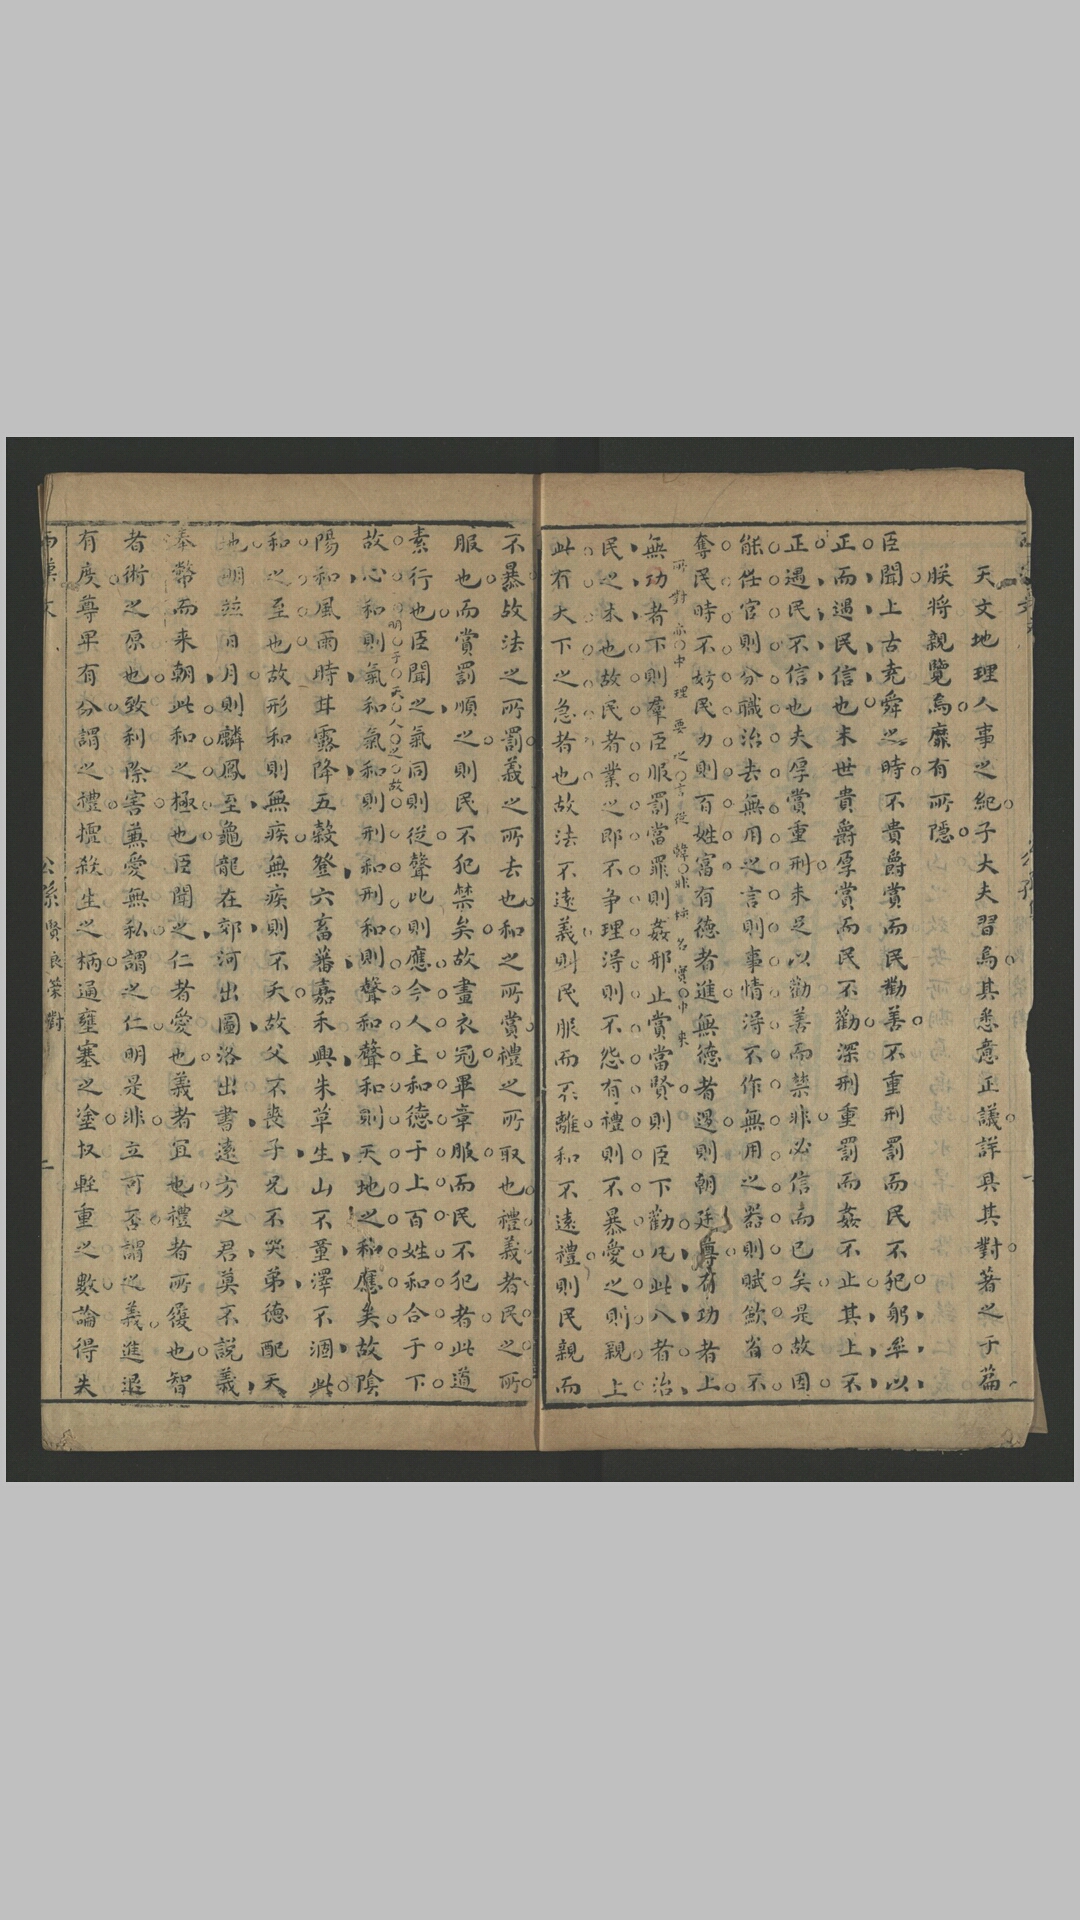 天文地理人事之紀子大夫習焉其悉意正議詳具其對著之于篇
朕將親覽焉靡有所隱
臣聞上古堯舜之時不貴爵賞而民勸善不重刑罰而民不犯躬率以
正而遇民信也末世貴爵厚賞而民不勸深刑重罰而姦不止其上不
正遇民不信也夫厚賞重刑未足以勸善而禁非必信而已矣是故因
能任官則分職治去無用之言則事情得不作無用之器則賦斂省不
奪民時不妨民力則百姓富有德者進無德者退則朝廷尊有功者上
所對亦中理要之言從韓非
無功者下則羣臣服罰當罪則姦邪止賞當賢則臣下勸凡此八者治
民之本也故民者業之即不争理得則不怨有禮則不暴愛之則親上
此有天下之急者也故法不遠義則民服而不離和不遠禮則民親而
不暴故法之所罰義之所去也和之所賞禮之所取也禮義者民之所
服也而賞罰順之則民不犯禁矣故畫衣冠異章服而民不犯者此道
素行也臣聞之氣同則從聲比則應今人主和德于上百姓和合于下
明于天人之故
故心和則氣和氣和則形和形和則聲和聲和則天地之和應矣故陰
陽和風雨時甘露降五穀登六畜蕃嘉禾興朱草生山不童澤不涸此
和之至也故形和則無疾無疾則不夭故父不喪子兄不哭弟德配天
地明並日月則麟鳳至龜龍在郊河出圖洛出書遠方之君莫不說義
奉幣而来朝此和之極也臣聞之仁者愛也義者宜也禮者所履也智
者術之原也致利除害兼愛無私謂之仁明是非立可否謂之義進退
有度尊卑有分謂之禮擅殺生之柄通壅塞之塗权輕重之數論得失
公孫 賢良策對